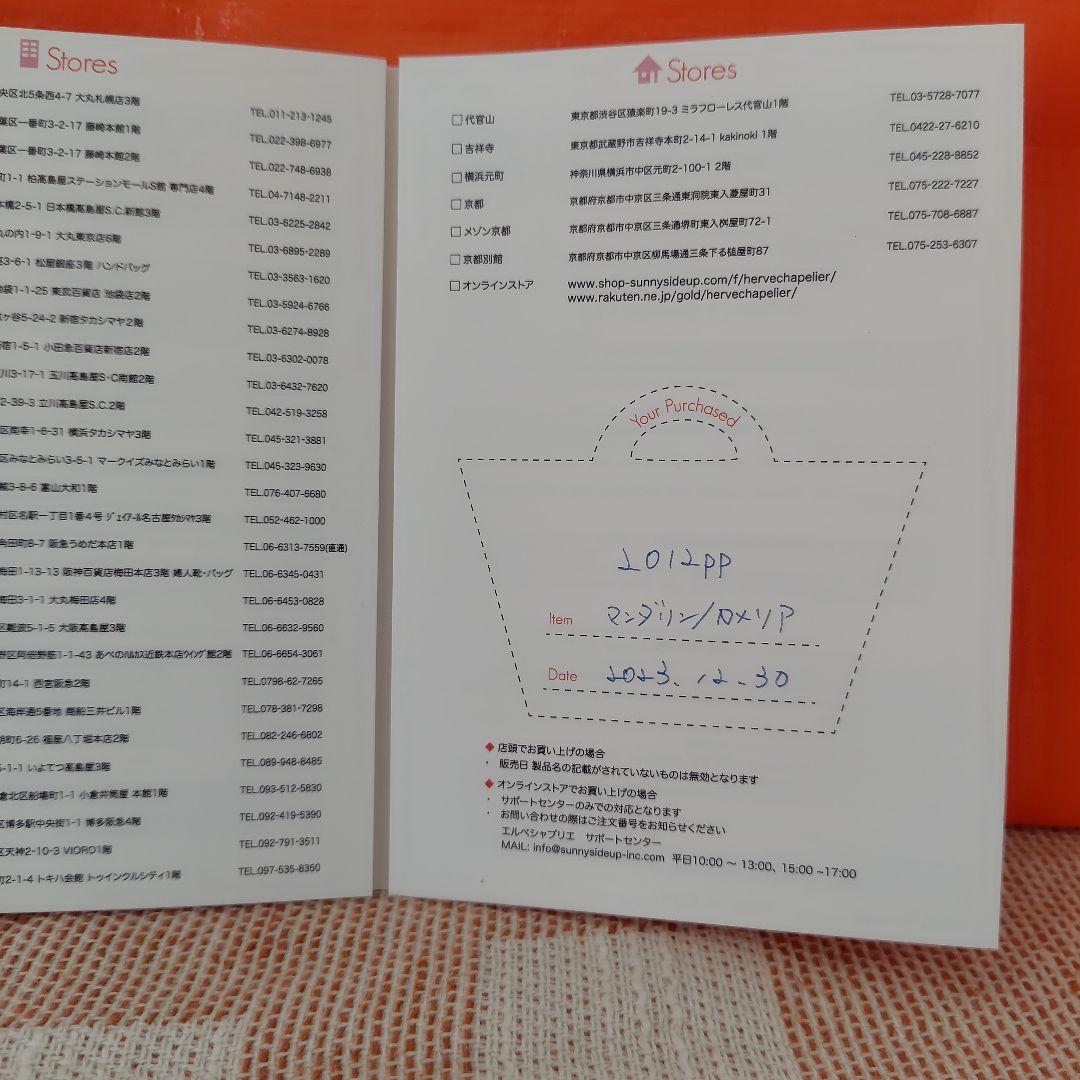 Stores
央区北5条西4-7 大丸札幌店3階 TEL.011-213-1245
葉区一番町3-2-17 藤崎本館1階 TEL.022-398-6977
葉区一番町3-2-17 藤崎本館2階 TEL.022-748-6938
町1-1 柏高島屋ステーションモールS館 専門店4階 TEL.04-7148-2211
本橋2-5-1 日本橋高島屋S.C.新館3階 TEL.03-6225-2842
の内1-9-1 大丸東京店6階 TEL.03-6895-2289
3-6-1 松屋銀座3階 ハンドバッグ TEL.03-3563-1620
池袋1-1-25 東武百貨店 池袋店2階 TEL.03-5924-6766
ヶ谷5-24-2 新宿タカシマヤ2階 TEL.03-6274-8928
宿1-5-1 小田急百貨店新宿店2階 TEL.03-6302-0078
川3-17-1 玉川高島屋S・C南館2階 TEL.03-6432-7620
2-39-3 立川高島屋S.C.2階 TEL.042-519-3258
区南幸1-6-31 横浜タカシマヤ3階 TEL.045-321-3881
区みなとみらい3-5-1 マークイズみなとみらい1階 TEL.045-323-9630
3-8-6 富山大和1階 TEL.076-407-6680
村区名駅一丁目1番4号 ジェイアール名古屋タカシマヤ3階 TEL.052-462-1000
角田町8-7 阪急うめだ本店1階 TEL.06-6313-7559(直通)
梅田1-13-13 阪神百貨店梅田本店3階 婦人靴・バッグ TEL.06-6345-0431
梅田3-1-1 大丸梅田店4階 TEL.06-6453-0828
区難波5-1-5 大阪高島屋3階 TEL.06-6632-9560
野区阿倍野筋1-1-43 あべのハルカス近鉄本店ウイング館2階 TEL.06-6654-3061
町14-1 西宮阪急2階 TEL.0798-62-7265
区海岸通5番地 商船三井ビル1階 TEL.078-381-7298
胡町6-26 福屋八丁堀本店2階 TEL.082-246-6802
5-1-1 いよてつ高島屋3階 TEL.089-948-8485
倉北区船場町1-1 小倉井筒屋 本館1階 TEL.093-512-5830
区博多駅中央街1-1 博多阪急4階 TEL.092-419-5390
区天神2-10-3 VIORO1階 TEL.092-791-3511
町2-1-4 トキハ会館 トゥインクルシティ1階 TEL.097-535-8350
Stores
代官山 東京都渋谷区猿楽町19-3 ミラフローレス代官山1階 TEL.03-5728-7077
吉祥寺 東京都武蔵野市吉祥寺本町2-14-1 kakinoki 1階 TEL.0422-27-6210
横浜元町 神奈川県横浜市中区元町2-100-1 2階 TEL.045-228-8852
京都 京都府京都市中京区三条通東洞院東入菱屋町31 TEL.075-222-7227
メゾン京都 京都府京都市中京区三条通堺町東入桝屋町72-1 TEL.075-708-6887
京都別館 京都府京都市中京区柳馬場通三条下る槌屋町87 TEL.075-253-6307
オンラインストア www.shop-sunnysideup.com/f/hervechapelier/
www.rakuten.ne.jp/gold/hervechapelier/
Your Purchased
2012PP
Item マンダリン/カメリア
Date 2023.12.30
◆ 店頭でお買い上げの場合
・ 販売日 製品名の記載がされていないものは無効となります
◆ オンラインストアでお買い上げの場合
・ サポートセンターのみでの対応となります
・ お問い合わせの際はご注文番号をお知らせください
エルベシャプリエ サポートセンター
MAIL: info@sunnysideup-inc.com 平日10:00 ~ 13:00、15:00 ~17:00